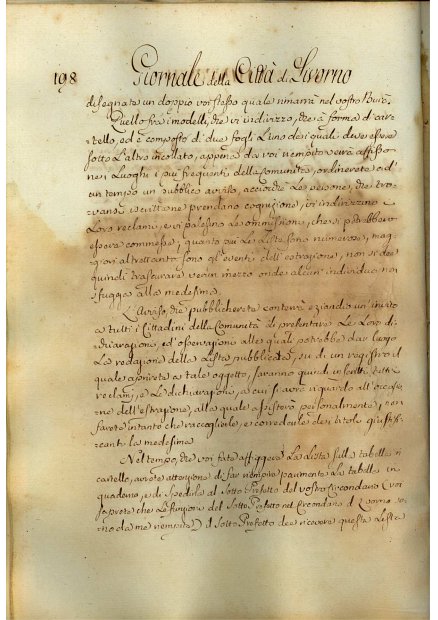 198 Giornale della Città di Livorno
disegnate un doppio voi stesso quale rimarrà nel vostro Burò.
Quello fra i modelli, che vi indirizzo, che à forma di car-
tello, ed è composto di due fogli l'uno dei quali deve essere
sotto l'altro incolato, appena da voi riempito sarà affisso
nei Luoghi i più frequenti della Comunità, ordinerete ad
un tempo un pubblico avviso, acciochè le persone, che tro-
vansi iscritte ne prendano cognizione, vi indirizzino i
Loro reclami, e vi palesino le ommissioni, che si potrebbero
essere commesse; quanto più le Liste sono numerose, mag-
giori altrettanto sono gl'eventi dell'estrazione, non si dee
quindi trascurare verun mezzo onde alcun individuo non
isfugga alla medesima.
L'Avviso, che pubblicherete conterrà eziandio un invito
a tutti i Cittadini della Comunità di presentare Le Loro di-
chiarazioni, ed osservazioni alle quali potrebbe dar luogo
La redazione della Lista pubblicata, su di un registro il
quale aprirete a tale oggetto, saranno quindi inscritti tutti i
reclami, e Le dichiarazioni, a cui si avrà riguardo all'occasio-
ne dell'estrazione, alla quale assisterò personalmente, non
farete intanto che raccogliere, e corredarle dei titoli giustifi-
canti la medesima
Nel tempo, che voi fate affiggere La Lista sulla tabella in
cartello, avrete attenzione di far riempire parimente La tabella in
quaderno, e di spedirla al Sotto Prefetto del vostro Circondario (voi
saprete che Le funzioni del Sotto Prefetto nel Circondario di Livorno so-
no da me riempite) il Sotto Prefetto dee ricevere questa Lista